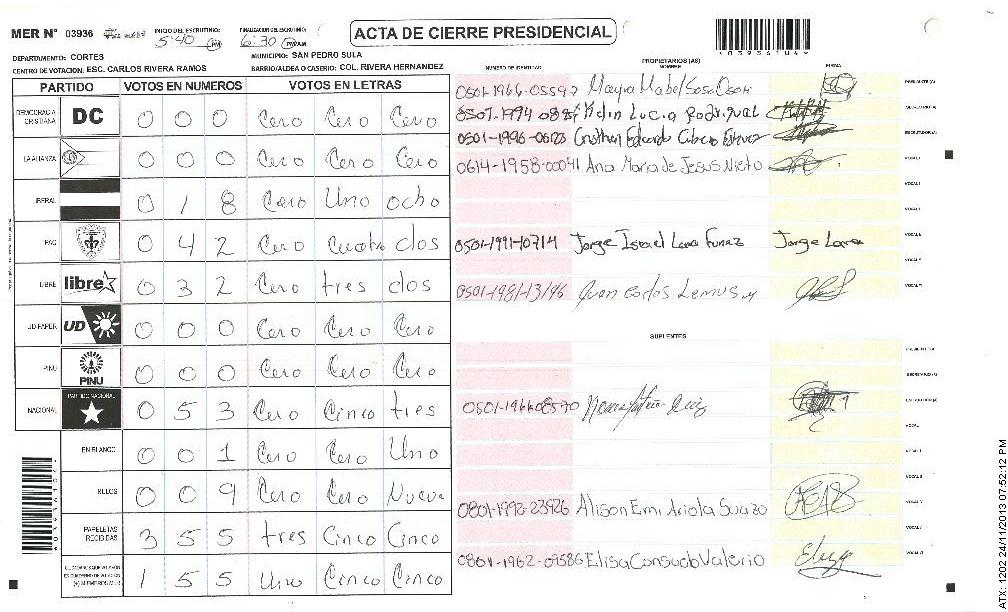 MER N° 03936
INICIO DEL ESCRUTINIO:
5:40 PM
FINALIZACION DEL ESCRUTINIO:
6:30 PM/AM
ACTA DE CIERRE PRESIDENCIAL
DEPARTAMENTO: CORTES
MUNICIPIO: SAN PEDRO SULA
CENTRO DE VOTACION: ESC. CARLOS RIVERA RAMOS
BARRIO/ALDEA O CASERIO: COL. RIVERA HERNANDEZ
PARTIDO VOTOS EN NUMEROS VOTOS EN LETRAS
DEMOCRACIA CRISTIANA DC 0 0 0 Cero Cero Cero
LA ALIANZA 0 0 0 Cero Cero Cero
LIBERAL 0 1 8 Cero Uno ocho
PAC 0 4 2 Cero Cuatro dos
LIBRE libre 0 3 2 Cero tres dos
UD PAPER UD 0 0 0 Cero Cero Cero
PINU PINU 0 0 0 Cero Cero Cero
NACIONAL PARTIDO NACIONAL 0 5 3 Cero Cinco tres
EN BLANCO 0 0 1 Cero Cero Uno
NULOS 0 0 9 Cero Cero Nueve
PAPELETAS RECIBIDAS 3 5 5 tres Cinco Cinco
1 5 5 Uno Cinco Cinco
NUMERO DE IDENTIDAD
PROPIETARIOS (AS)
NOMBRE
FIRMA
Mayra Mabel Sosa PRESIDENTE(A)
Lucia Rodriguez SECRETARIO(A)
Eduardo ESCRUTADOR(A)
0614-1958-00041 Ana Maria de Jesus Nieto VOCAL I
0501-1991-10714 Jorge Israel Lara Funez Jorge Lara
0501-1981-13196 Juan Carlos Lemus
SUPLENTES
PRESIDENTE(A)
SECRETARIO(A)
ESCRUTADOR(A)
0801-1992-23926 Alison Emi Ariola Suazo
0801-1962-09586 Elisa Consuelo Valerio
ATX: 1202 24/11/2013 07:52:12 PM